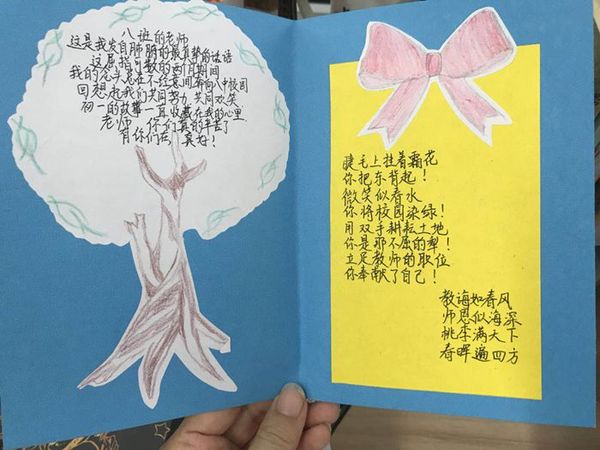 八班的老师
这是我发自肺腑的最真挚的话语
这屈指可数的两个月期间
我的念头总在不经意间奔向八中校园
回想起我们共同努力 共同欢笑
初一的故事一直收藏在我的心里
老师 你们真的辛苦了
有你们在 真好!
睫毛上挂着霜花
你把东背起!
微笑似春水
你将校园染绿!
用双手耕耘土地
你是那不屈的犁!
立足教师的职位
你奉献了自己!
教诲如春风
师恩似海深
桃李满天下
春晖遍四方